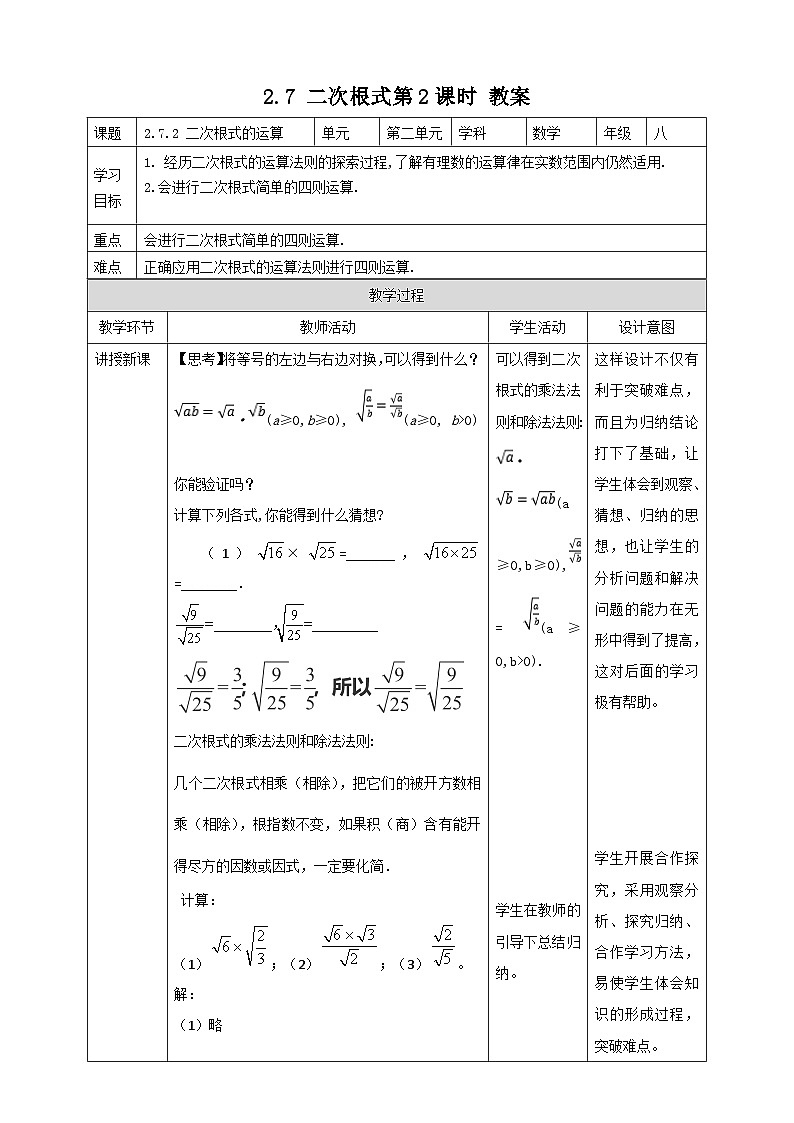 2.7 二次根式第2课时 教案
课题 2.7.2 二次根式的运算 单元 第二单元 学科 数学 年级 八
学习
目标
1. 经历二次根式的运算法则的探索过程,了解有理数的运算律在实数范围内仍然适用.
2.会进行二次根式简单的四则运算.
重点 会进行二次根式简单的四则运算.
难点 正确应用二次根式的运算法则进行四则运算.
教学过程
教学环节 教师活动 学生活动 设计意图
讲授新课
【思考】将等号的左边与右边对换,可以得到什么?
√ab = √a .√b(a≥0,b≥0), √(a/b) = √a/√b (a≥0, b>0)
你能验证吗?
计算下列各式,你能得到什么猜想?
(1) √16 × √25 =______ , √(16×25)
=_______.
√9/√25=_______,√(9/25)=________
√9/√25=3/5; √(9/25)=3/5, 所以 √9/√25=√(9/25)
二次根式的乘法法则和除法法则:
几个二次根式相乘(相除),把它们的被开方数相
乘(相除),根指数不变,如果积(商)含有能开
得尽方的因数或因式,一定要化简.
计算:
(1) √6×√(2/3) ;(2) (√6×√3)/√2 ;(3) √2/√5 。
解:
(1)略
可以得到二次
根式的乘法法
则和除法法则:
√a .
√b = √ab(a
≥0,b≥0),√a/√b
= √(a/b)(a ≥
0,b>0).
学生在教师的
引导下总结归
纳。
这样设计不仅有
利于突破难点,
而且为归纳结论
打下了基础,让
学生体会到观察、
猜想、归纳的思
想,也让学生的
分析问题和解决
问题的能力在无
形中得到了提高,
这对后面的学习
极有帮助。
学生开展合作探
究,采用观察分
析、探究归纳、
合作学习方法,
易使学生体会知
识的形成过程,
突破难点。